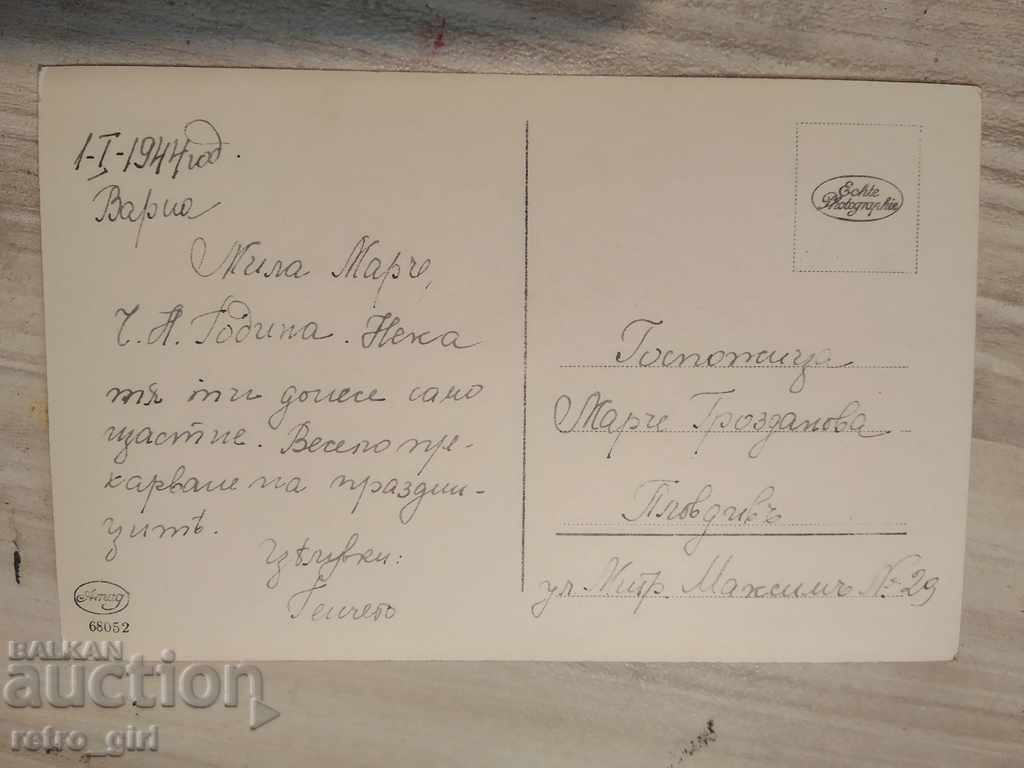 1-I-1944 год.
Варна
Мила Марче,
Ч. Н. Година. Нека
тя ти донесе само
щастие. Весело пре-
карване на праздни-
цитѣ.
Цѣлувки:
Генчето
Amag
68052
Echte
Photographie
Госпожица
Марче Грозданова
Пловдивъ
ул. Митр. Максимъ № 29
BALKAN
auction
retro_girl